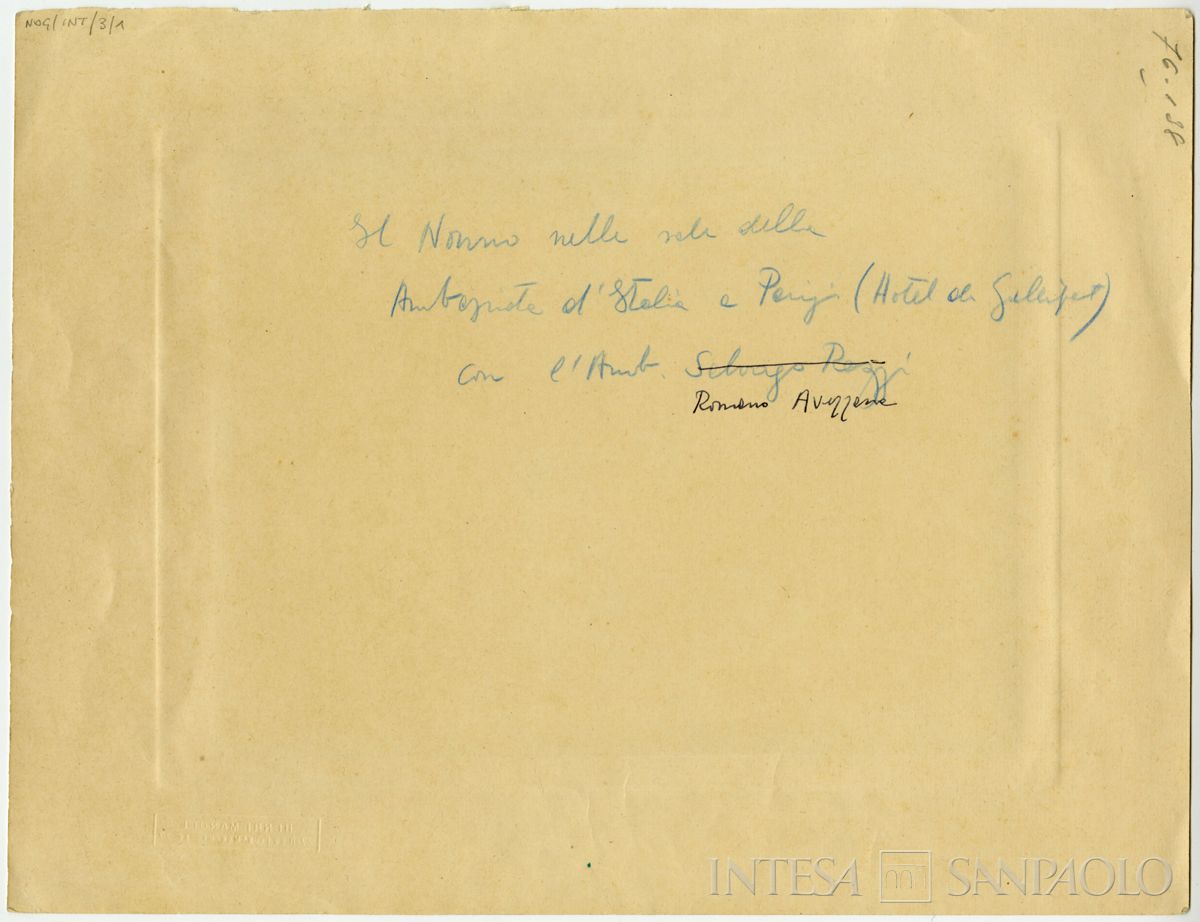 NOG/INT/3/1
76.188
Il Nonno nelle sale della
Ambasciata d'Italia a Parigi (Hotel de Gallifet)
con l'Amb. Salvago Raggi
Romano Avezzana
HENRI MANUEL
INTESA SANPAOLO